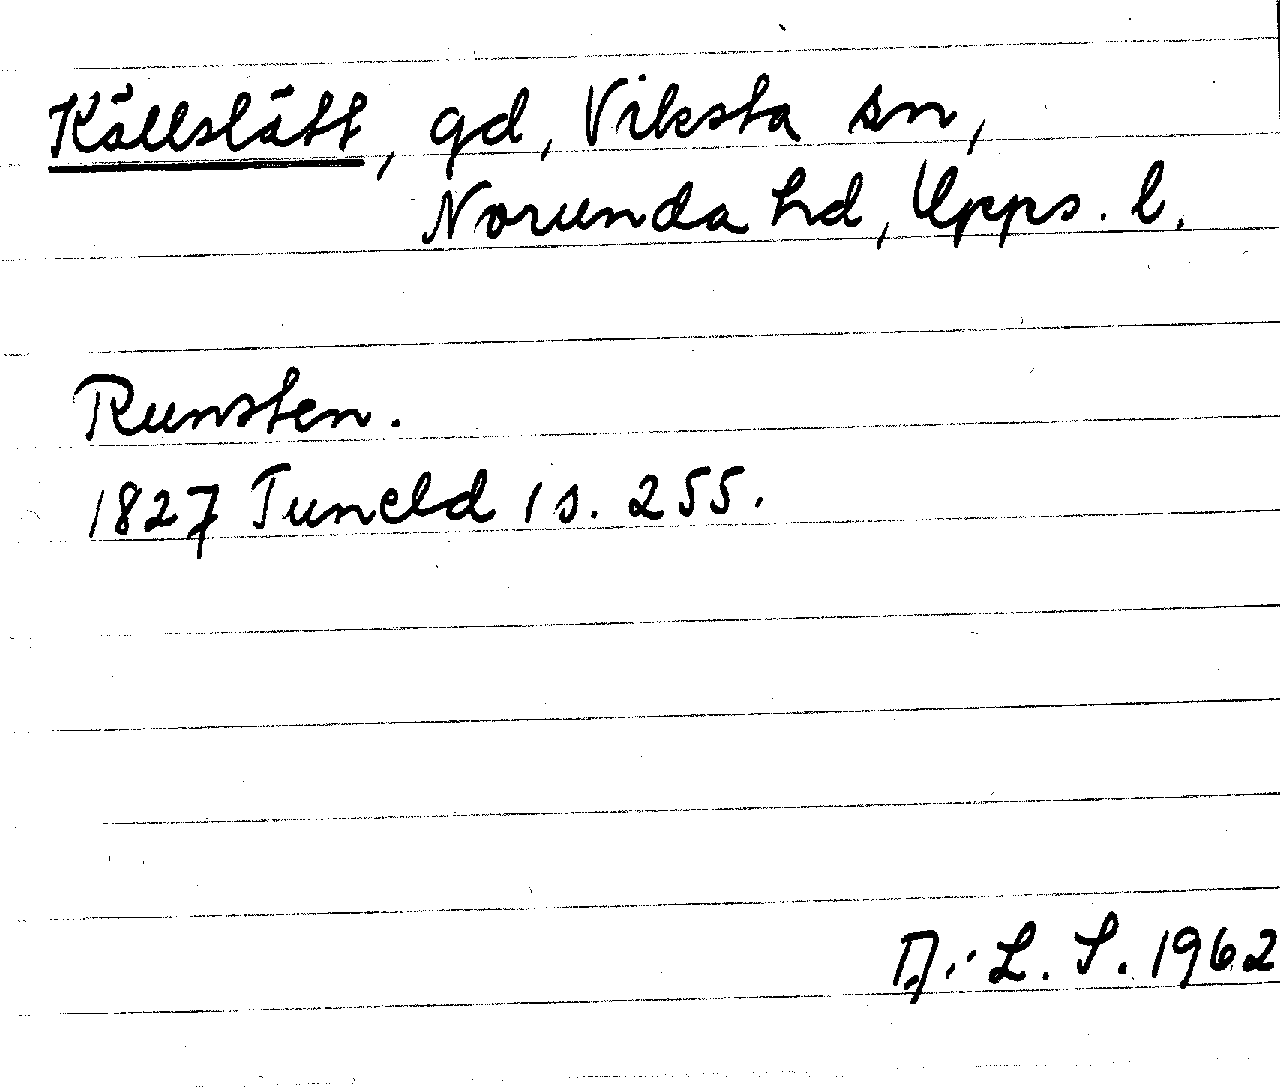 Källslätt, gd, Viksta sn,
Norunda hd, Upps. l.
Runsten.
1827 Tuneld 1 s. 255.
L. S. 1962